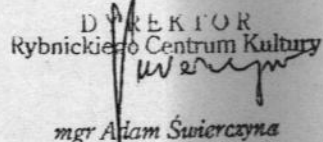 DYREKTOR
Rybnickiego Centrum Kultury
mgr Adam Świerczyna